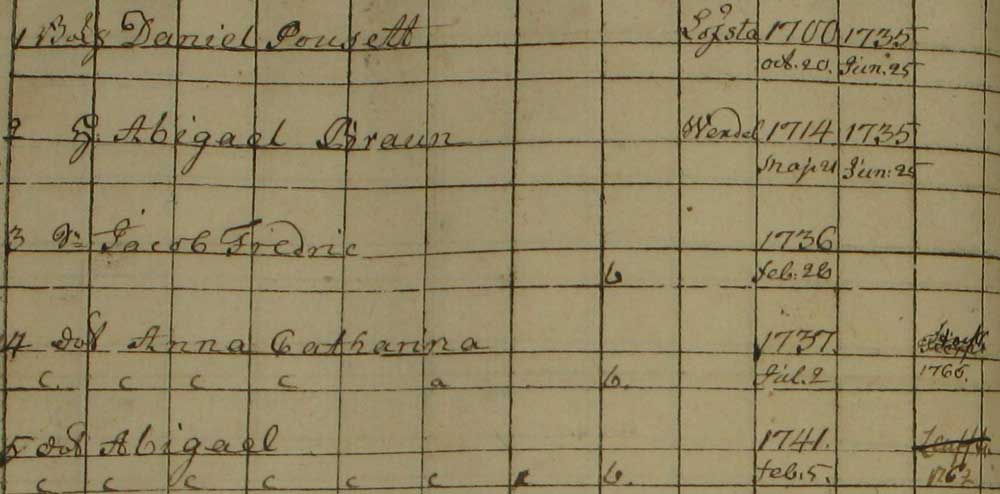 1 Bokh Daniel Pousett Löfsta 1700 1735
oct. 20. Jun. 25
2 H. Abigael Braun Wendel 1714 1735
Maj 21 Jun: 25
3 Jacob Fredric 1736
b feb: 26
4 dot Anna Catharina 1737.
c. c c c a b. Jul. 2 1765.
5 dot Abigael 1741.
c c c c c c b. feb. 5. 1762